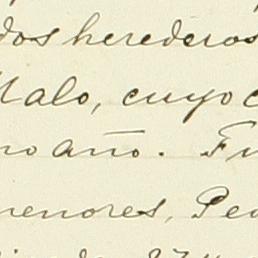 dos herederos
Malo, cuyo c
no año. Fu
menores, Ped